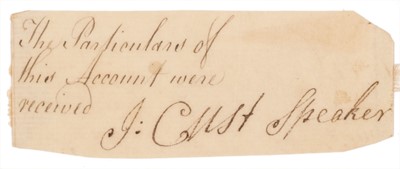 The Particulars of
this Account were
received
J: Cust Speaker